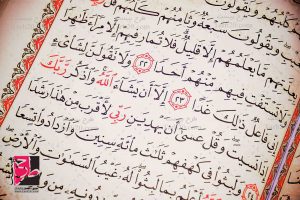 وَيَقُولُونَ سَبْعَةٌ وَثَامِنُهُمْ كَلْبُهُمْ
يَعْلَمُهُمْ إِلَّا قَلِيلٌ فَلَا تُمَارِ فِيهِمْ إِلَّا مِرَآءً ظَٰهِرًا
تَسْتَفْتِ فِيهِم مِّنْهُمْ أَحَدًا ٢٢ وَلَا تَقُولَنَّ لِشَا۟ىْءٍ
إِنِّى فَاعِلٌ ذَٰلِكَ غَدًا ٢٣ إِلَّآ أَن يَشَآءَ ٱللَّهُ وَٱذْكُر رَّبَّكَ
إِذَا نَسِيتَ وَقُلْ عَسَىٰٓ أَن يَهْدِيَنِ رَبِّى لِأَقْرَبَ مِنْ هَٰذَا رَشَدًا
وَلَبِثُوا۟ فِى كَهْفِهِمْ ثَلَٰثَ مِا۟ئَةٍ سِنِينَ وَٱزْدَادُوا۟ تِسْعًا
أَعْلَمُ بِمَا لَبِثُوا۟ لَهُۥ غَيْبُ ٱلسَّمَٰوَٰتِ وَٱلْأَرْضِ